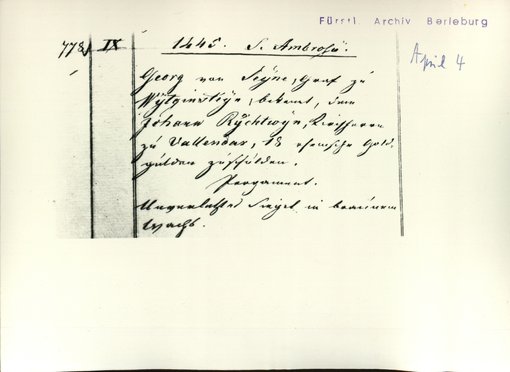 Fürstl. Archiv Berleburg
778) IX 1445. S. Ambrosii.
April 4
Georg von Seyne, Graf zu
Wytginsteyn, bekent, dem
Johann Rychwyn, Kirchherrn
zu Vallendar, 18 rheinische Gold-
gulden zu schulden.
Pergament.
Unverletztes Siegel in braunem
Wachs.